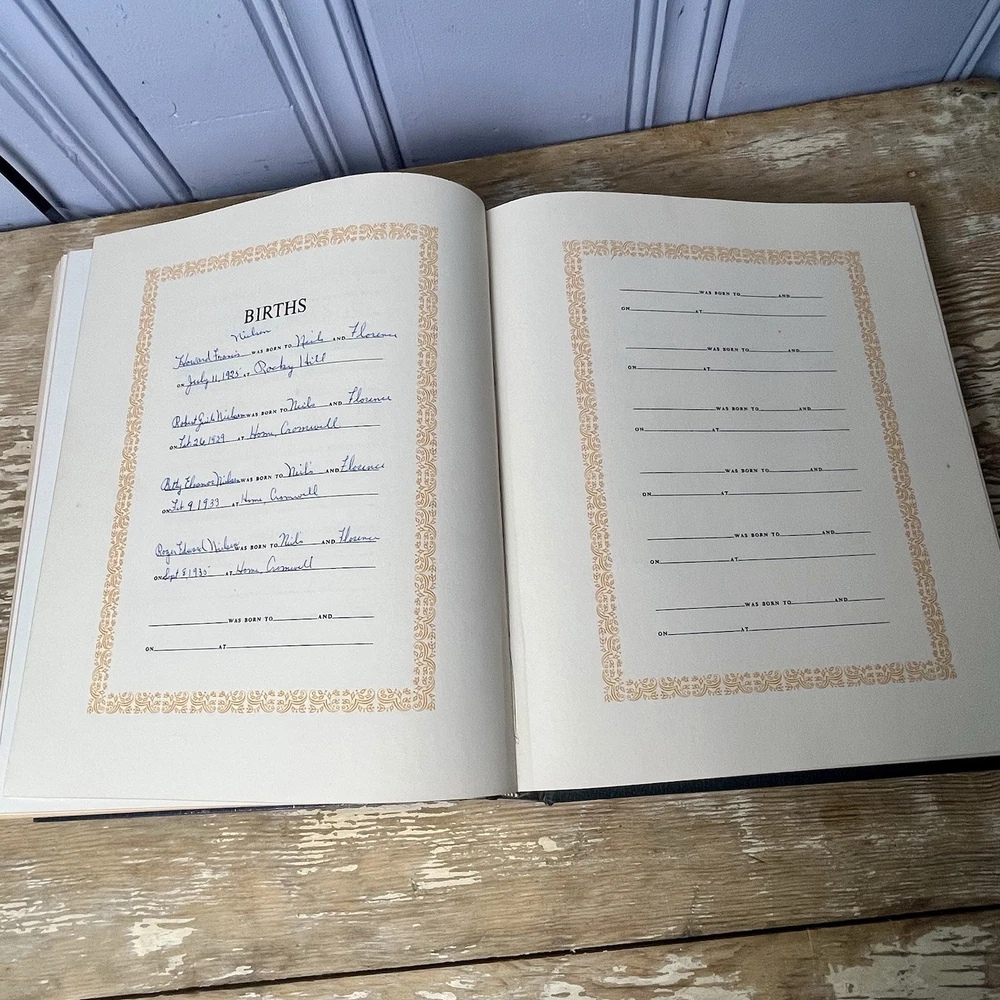 BIRTHS
Nielsen
Howard Francis WAS BORN TO Neils AND Florence
ON July 11, 1925 AT Rocky Hill
Robert Nielsen WAS BORN TO Neils AND Florence
ON Feb 26 1929 AT Home, Cromwell
Betty Eleanor Nielsen WAS BORN TO Neil's AND Florence
ON Feb 9, 1933 AT Home, Cromwell
Roger Edward Nielsen WAS BORN TO Neil's AND Florence
ON Sept 8 1935 AT Home, Cromwell
WAS BORN TO AND
ON AT
WAS BORN TO AND
ON AT
WAS BORN TO AND
ON AT
WAS BORN TO AND
ON AT
WAS BORN TO AND
ON AT
WAS BORN TO AND
ON AT
WAS BORN TO AND
ON AT